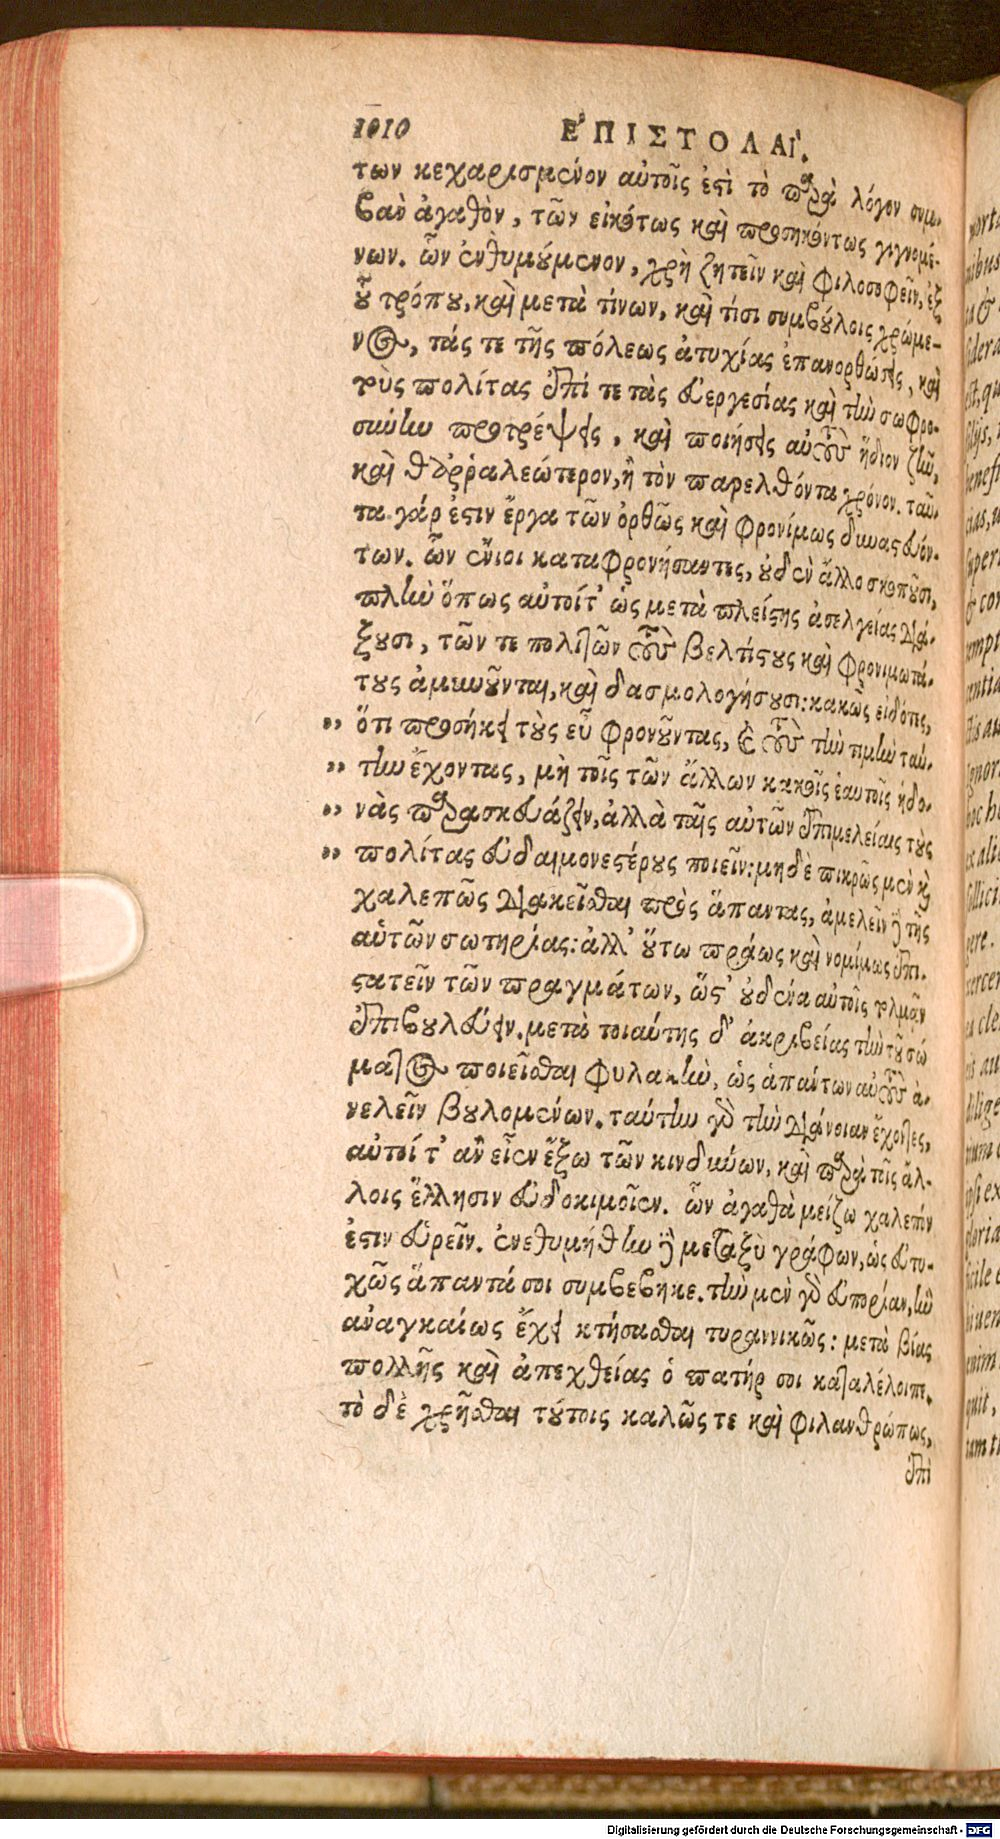 1010 ἘΠΙΣΤΟΛΑΊ.
των κεχαρισμένον αὐτοῖς ἐστὶ τὸ παρὰ λόγον συμ-
βὰν ἀγαθὸν, τῶν εἰκότως καὶ προσηκόντως γιγνομέ-
νων. ὧν ἐνθυμούμενον, χρὴ ζητεῖν καὶ φιλοσοφεῖν, ἐξ
οὗ τρόπου, καὶ μετὰ τίνων, καὶ τίσι συμβούλοις χρώμε-
νος, τάς τε τῆς πόλεως ἀτυχίας ἐπανορθώσεις, καὶ
τοὺς πολίτας ἐπί τε τὰς εὐεργεσίας καὶ τὴν σωφρο-
σύνην προτρέψεις, καὶ ποιήσεις αὐτοὺς ἥδιον ζῆν,
καὶ θαῤῥαλεώτερον, ἢ τὸν παρελθόντα χρόνον. ταῦ-
τα γάρ ἐστιν ἔργα τῶν ὀρθῶς καὶ φρονίμως δυναστευόν-
των. ὧν ἔνιοι καταφρονήσαντες, οὐδὲν ἄλλο σκοποῦσι,
πλὴν ὅπως αὐτοίτ' ὡς μετὰ πλείστης ἀσελγείας διά-
ξουσι, τῶν τε πολιτῶν τοὺς βελτίστους καὶ φρονιμωτά-
τους ἀμυνοῦνται, καὶ δασμολογήσουσι: κακῶς εἰδότες,
„ ὅτι προσήκει τοὺς εὖ φρονοῦντας, καὶ τοὺς τὴν τιμὴν ταύ-
„ την ἔχοντας, μὴ τοῖς τῶν ἄλλων κακοῖς ἑαυτοῖς ἡδο-
„ νὰς παρασκευάζειν, ἀλλὰ ταῖς αὐτῶν ἐπιμελείαις τοὺς
„ πολίτας εὐδαιμονεστέρους ποιεῖν: μηδὲ πικρῶς μὲν καὶ
χαλεπῶς διακεῖσθαι πρὸς ἅπαντας, ἀμελεῖν δὲ τῆς
αὑτῶν σωτηρίας: ἀλλ' οὕτω πράως καὶ νομίμως ἐπι-
στατεῖν τῶν πραγμάτων, ὥστ' οὐδένα αὐτοῖς τολμᾶν
ἐπιβουλεύειν. μετὰ τοιαύτης δ' ἀκριβείας τὴν τοῦ σώ
ματος ποιεῖσθαι φυλακὴν, ὡς ἁπάντων αὐτοὺς ἀ-
νελεῖν βουλομένων. ταύτην γὰρ τὴν διάνοιαν ἔχοντες,
αὐτοί τ' ἂν εἶεν ἔξω τῶν κινδύνων, καὶ παρὰ τοῖς ἄλ-
λοις ἕλλησιν εὐδοκιμοῖεν. ὧν ἀγαθὰ μείζω χαλεπόν
ἐστιν εὑρεῖν. ἐνεθυμήθην δὲ μεταξὺ γράφων, ὡς εὐτυ-
χῶς ἅπαντά σοι συμβέβηκε. τὴν μὲν γὰρ εὐπορίαν, ἣν
ἀναγκαίως ἔχει κτήσασθαι τυραννικῶς: μετὰ βίας
πολλῆς καὶ ἀπεχθείας ὁ πατήρ σοι καταλέλοιπε.
τὸ δὲ χρῆσθαι τούτοις καλῶς τε καὶ φιλανθρώπως,
ἐπὶ
Digitalisierung gefördert durch die Deutsche Forschungsgemeinschaft - DFG